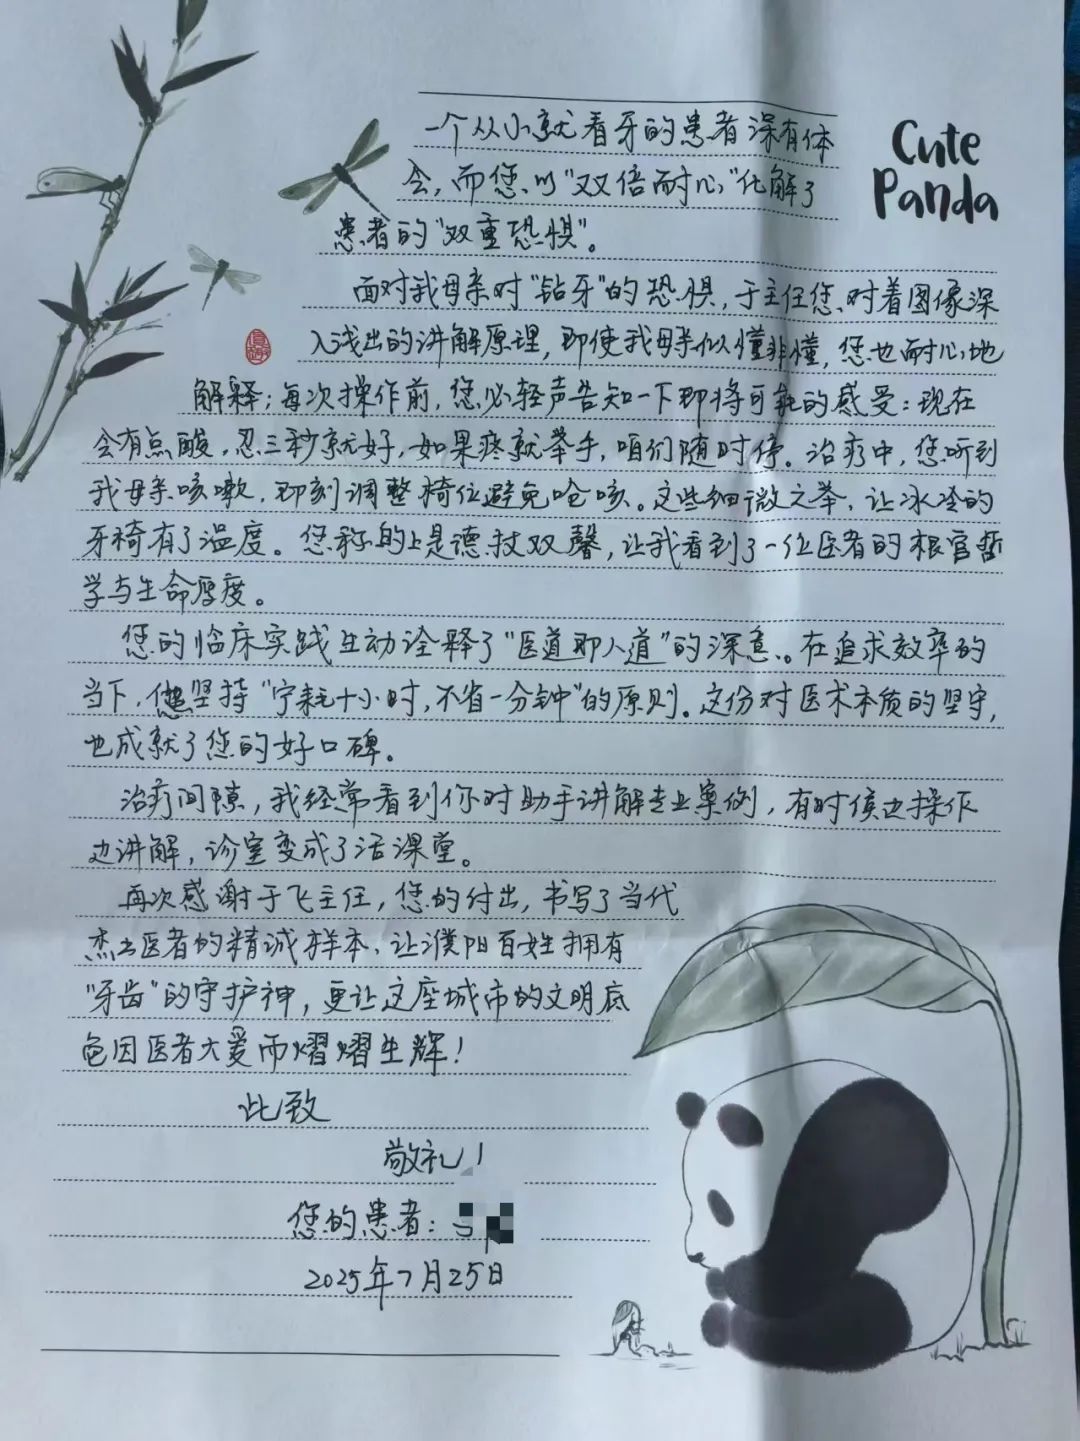 Cute
Panda
一个从小就看牙的患者深有体
会，而您以“双倍耐心”化解了
患者的“双重恐惧”。
面对我母亲对“钻牙”的恐惧，于主任您对着图像深
入浅出的讲解原理，即使我母亲似懂非懂，您也耐心地
解释；每次操作前，您必轻声告知一下即将可能的感受：现在
会有点酸，忍三秒就好，如果疼就举手，咱们随时停。治疗中，您听到
我母亲咳嗽，即刻调整椅位避免呛咳。这些细微之举，让冰冷的
牙椅有了温度。您称的上是德技双馨，让我看到了一位医者的根官哲
学与生命厚度。
您的临床实践生动诠释了“医道即人道”的深意。在追求效率的
当下，您坚持“宁耗十小时，不省一分钟”的原则。这份对医术本质的坚守，
也成就了您的好口碑。
治疗间隙，我经常看到你对助手讲解专业案例，有时候边操作
边讲解，诊室变成了活课堂。
再次感谢于飞主任，您的付出，书写了当代
杰出医者的精诚样本，让濮阳百姓拥有
“牙齿”的守护神，更让这座城市的文明底
色因医者大爱而熠熠生辉！
此致
敬礼！
您的患者：
2025年7月25日